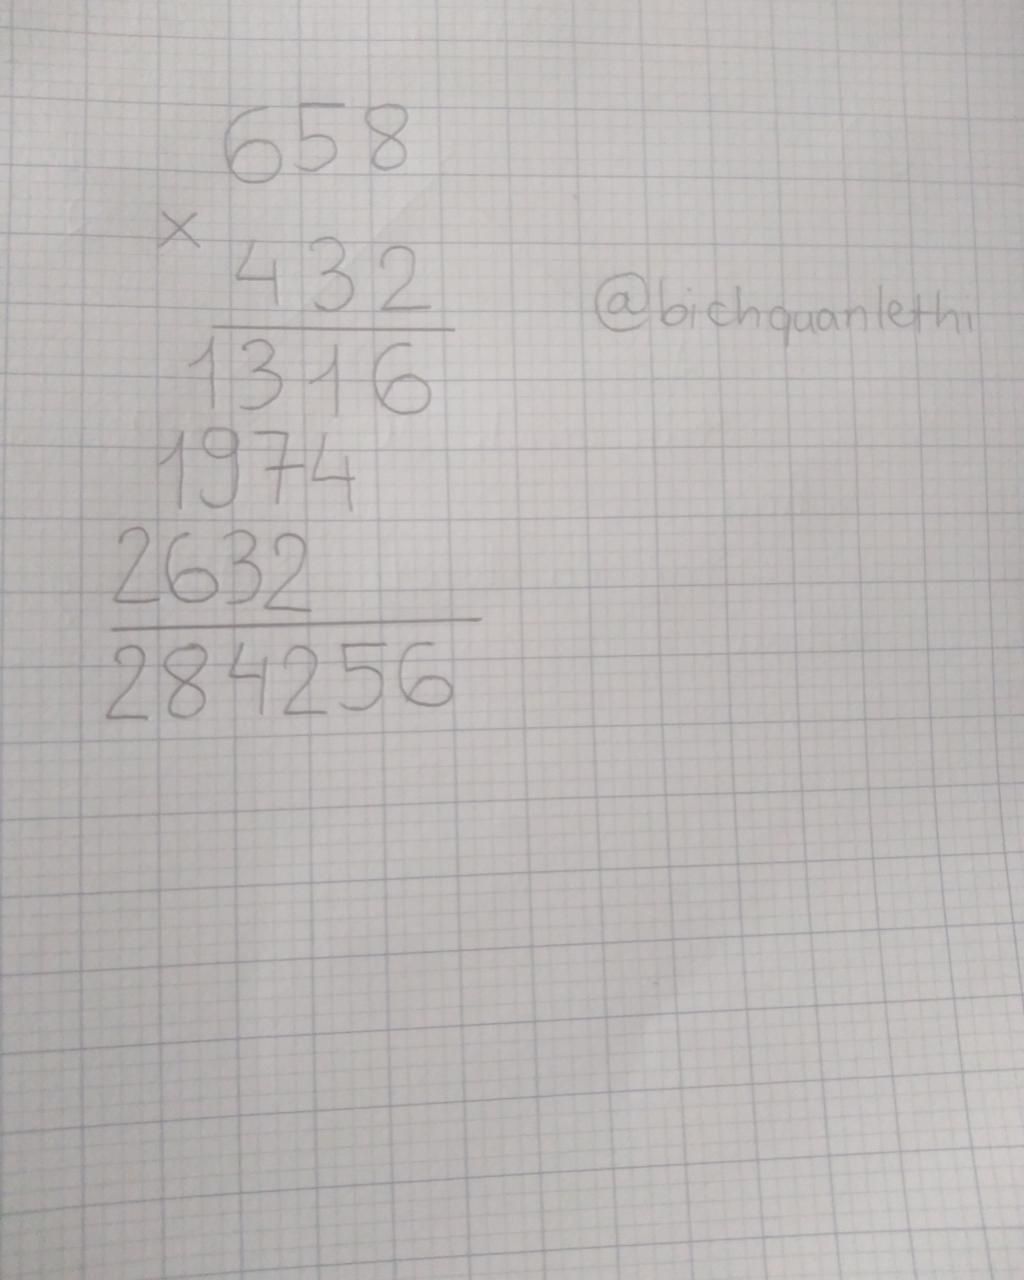 658
×
432
@bichquanlethi
1316
1974
2632
284256